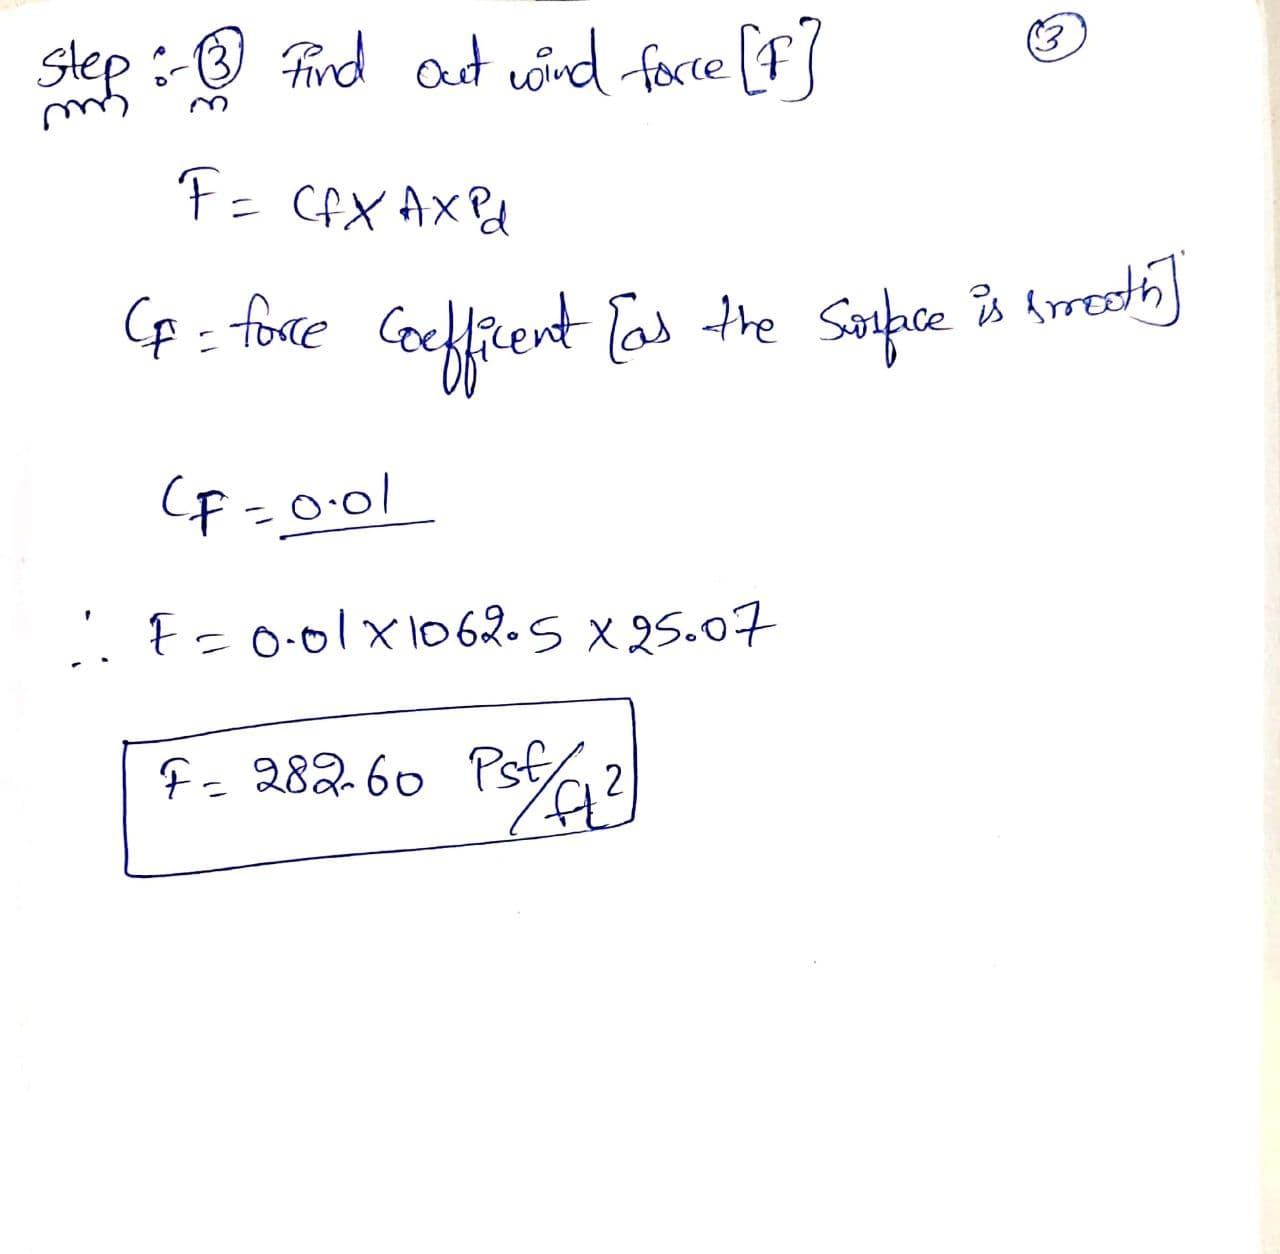 Step :- ③ Find out wind force [F]
③
F = Cf X A X Pd
CF = force Coefficent [as the Surface is smooth]
CF = 0.01
∴ F = 0.01 X 1062.5 X 25.07
F = 282.60 Psf/ft²